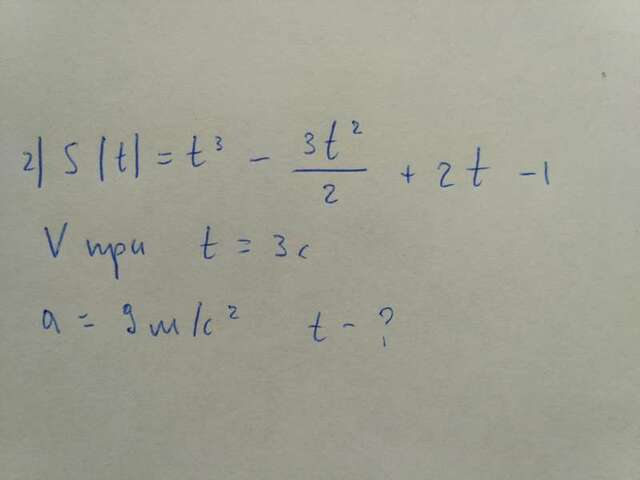 2) S(t) = t³ - 3t²/2 + 2t - 1
V при t = 3с
a = 9 м/с² t - ?